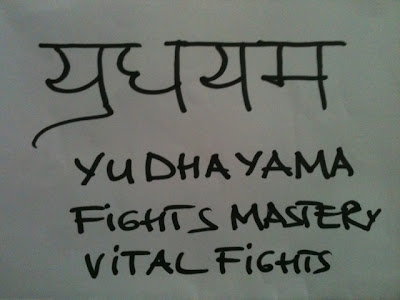 युधयम
YUDHAYAMA
FIGHTS MASTERY
VITAL FIGHTS